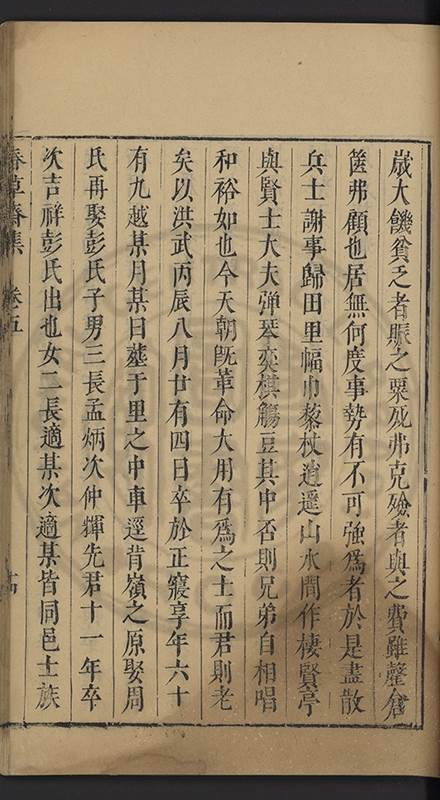 歲大饑貧乏者賑之粟死弗克殮者與之費雖罄倉
篋弗顧也居無何度事勢有不可強為者於是盡散
兵士謝事歸田里幅巾藜杖逍遥山水間作棲賢亭
與賢士大夫彈琴奕棋觴豆其中否則兄弟自相唱
和裕如也今天朝既革命大用有為之士而君則老
矣以洪武丙辰八月廿有四日卒於正寢享年六十
有九越某月某日塟于里之中車逕背嶺之原娶周
氏再娶彭氏子男三長孟炳次仲輝先君十一年卒
次吉祥彭氏出也女二長適某次適某皆同邑士族
春草齋集 卷五